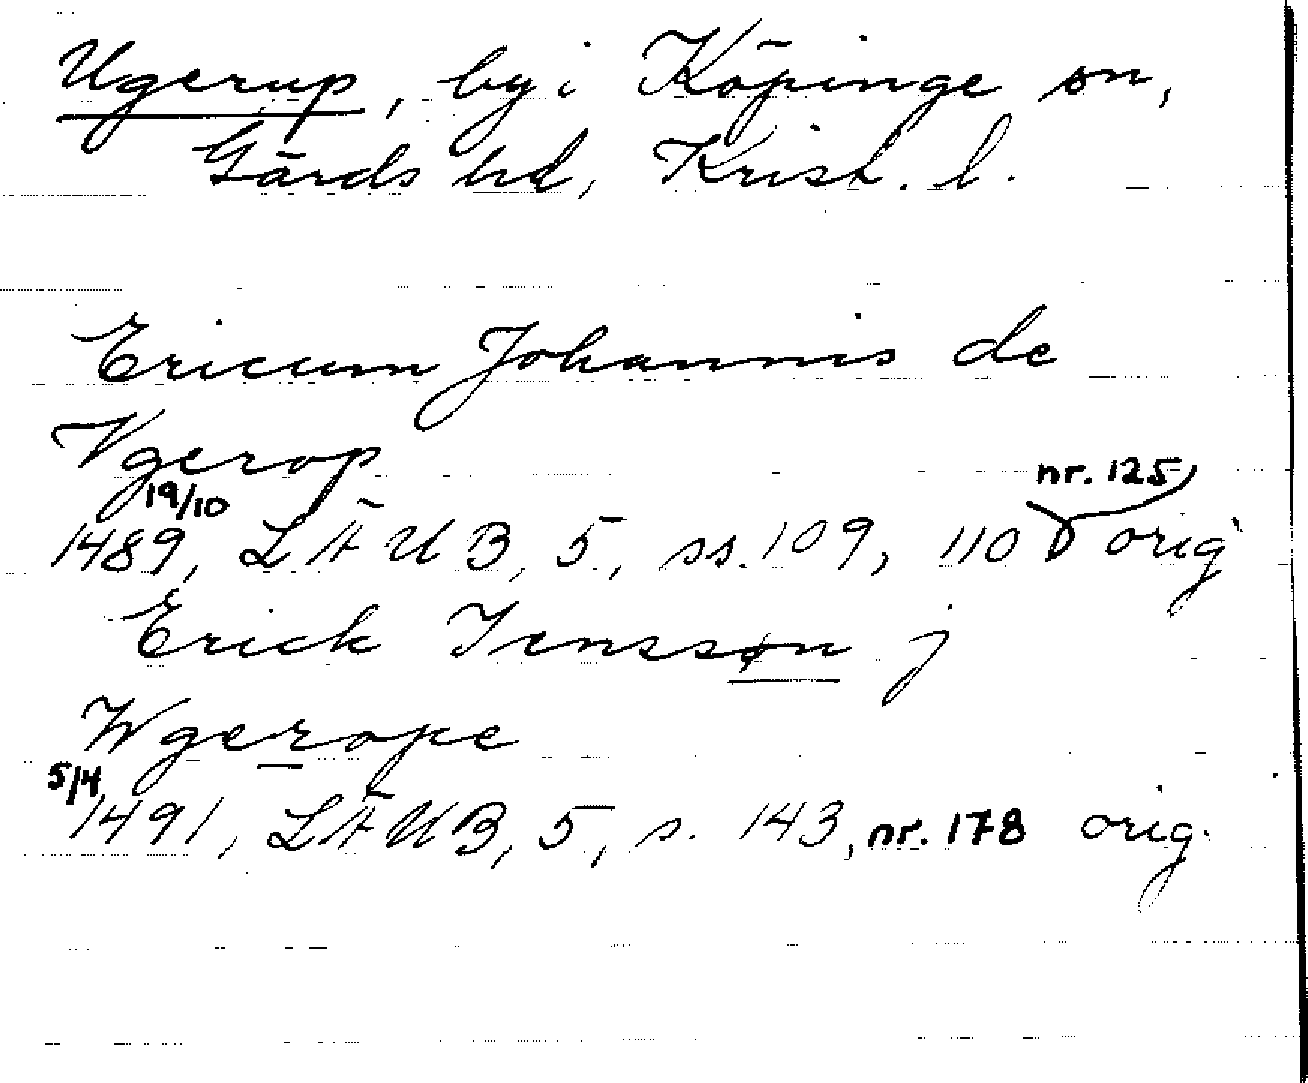 Ugerup, by i Köpinge sn,
Gärds hd, Krist. l.
Ericum Johannis de
Vgerop
19/10 nr. 125
1489, LÄUB, 5, ss. 109, 110 orig
Erick Jenssøn j
Wgerope
5/4
1491, LÄUB, 5, s. 143, nr. 178 orig.